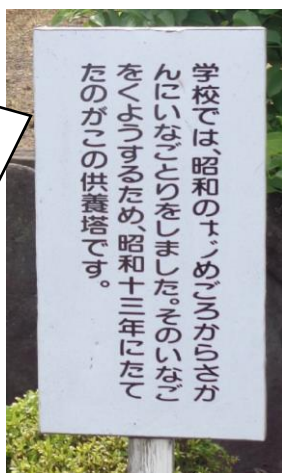 学校では、昭和のはじめごろからさか
んにいなごとりをしました。そのいなご
をくようするため、昭和十三年にたて
たのがこの供養塔です。